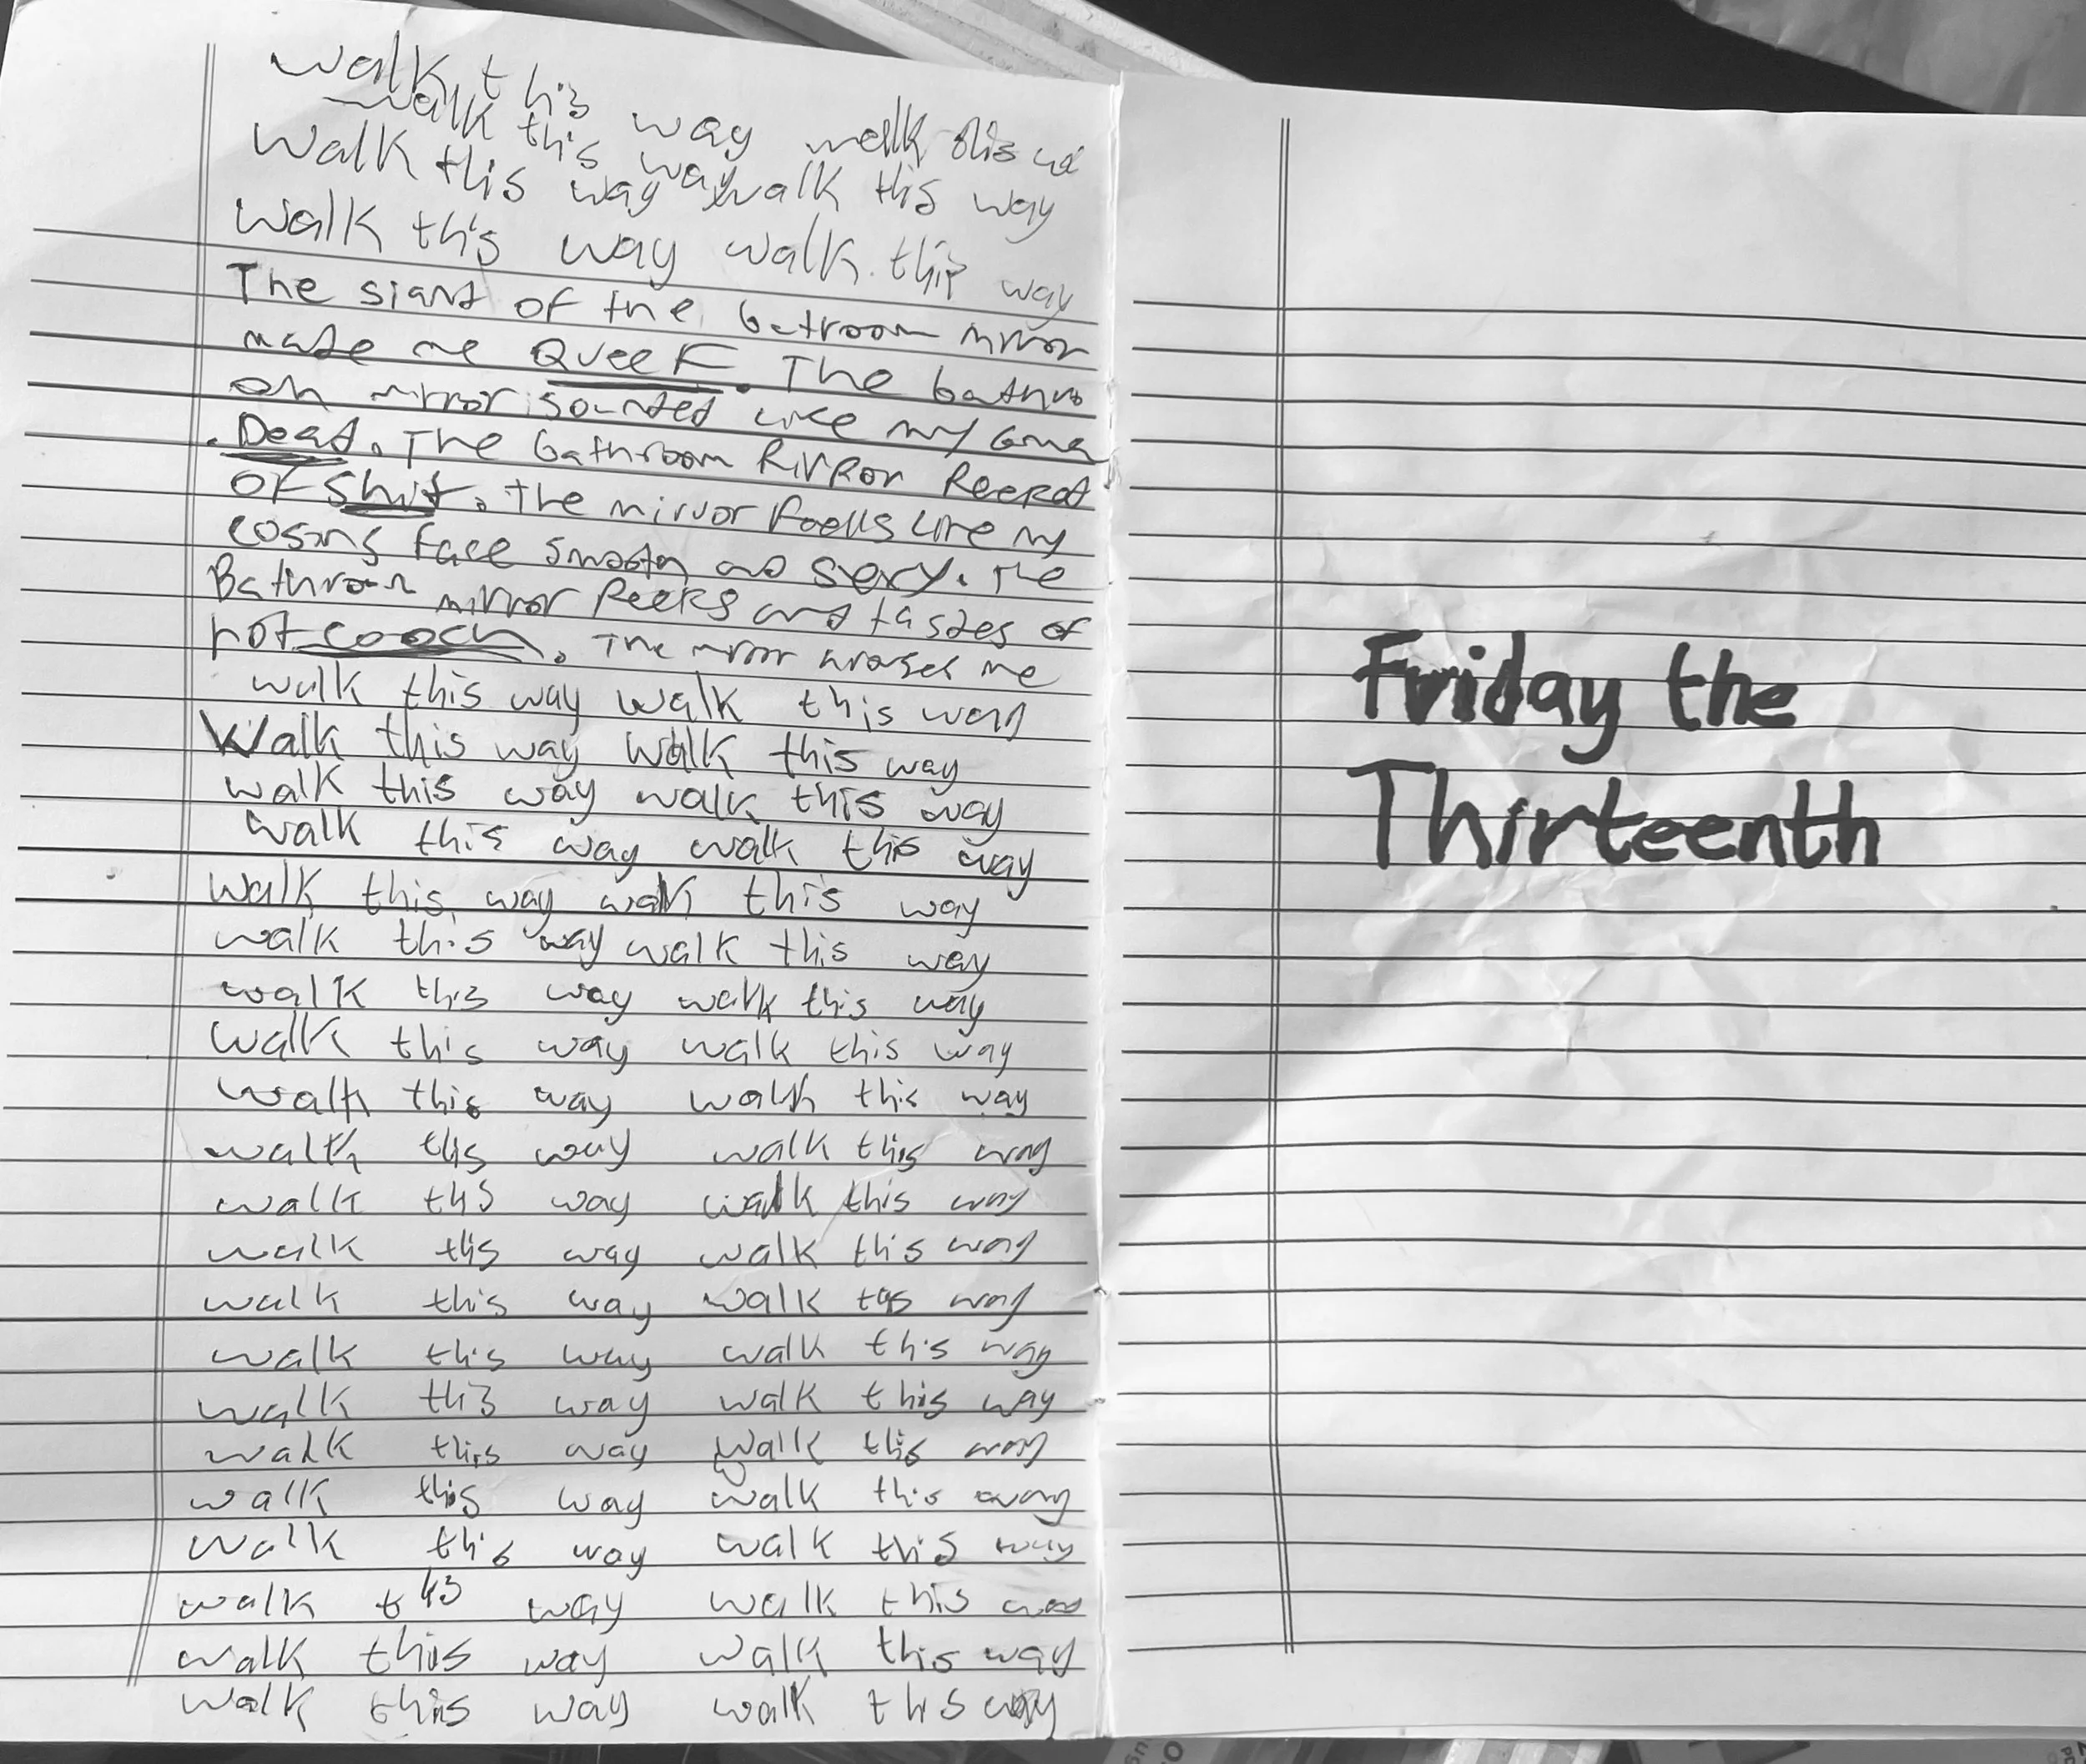 walk this way walk this
walk this way
Walk this way walk this way
walk this way walk this way
The siand of the batroom mirror
made me QueeF. The bathro
om mirror sounded like my Gma
. Dead. The bathroom RirRor Reeked
OF Shit. The mirror feels like my
cosins face smooth and sexy. The
Bathroom mirror Reeks and tastes of
hot cooch. The mirror me
walk this way walk this way
Walk this way walk this way
walk this way walk this way
walk this way walk this way
walk this way walk this way
walk this way walk this way
walk this way walk this way
walk this way walk this way
walk this way walk this way
walk this way walk this way
walk this way walk this way
walk this way walk this way
walk this way walk this way
walk this way walk this way
walk this way walk this way
walk this way walk this way
walk this way walk this way
walk this way walk this way
walk this way walk this
walk this way walk this way
walk this way walk this way
Friday the
Thirteenth